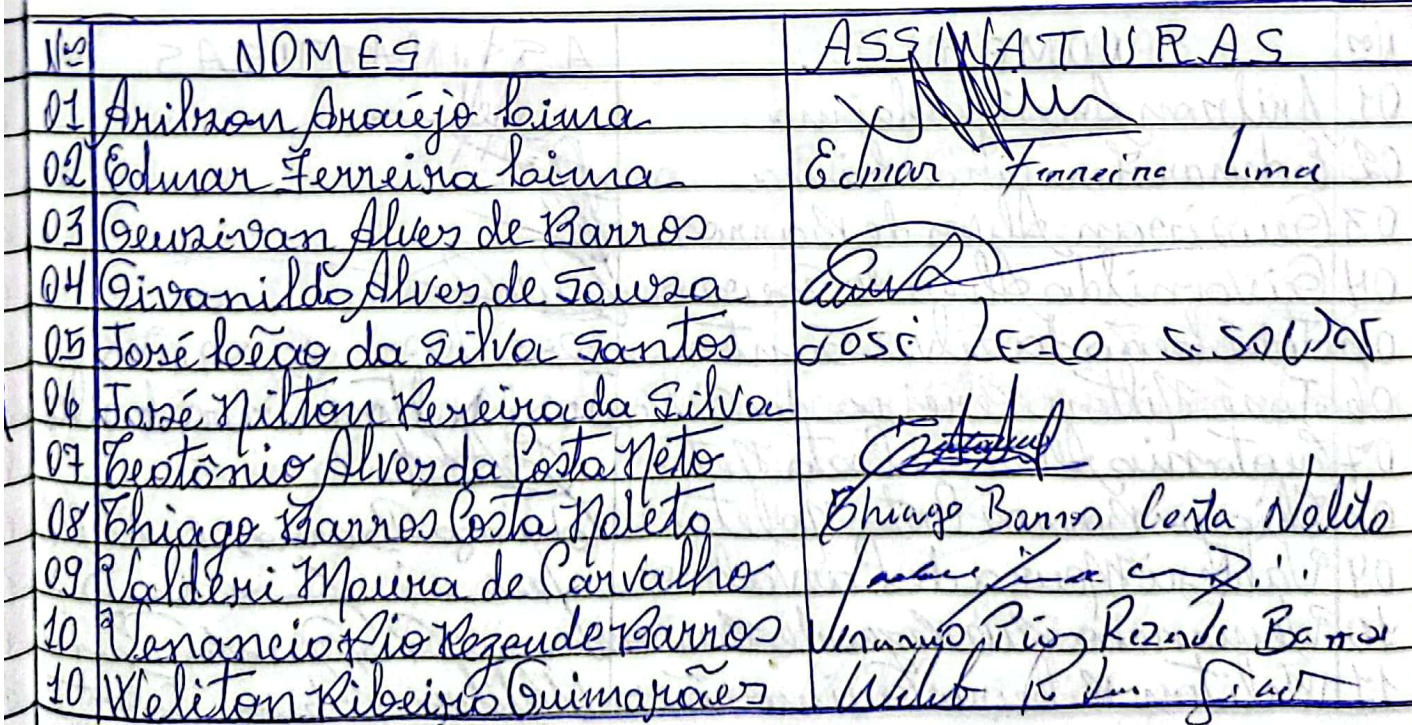 Nos NOMES ASSINATURAS
01 Arilson Araújo Lima
02 Edmar Ferreira Lima Edmar Ferreira Lima
03 Geusivan Alves de Barros
04 Givanildo Alves de Souza
05 José Leão da Silva Santos José Leão S. SANTOS
06 José Nilton Pereira da Silva
07 Teotônio Alves da Costa Neto
08 Thiago Barros Costa Noleto Thiago Barros Costa Noleto
09 Valderi Moura de Carvalho
10 Venancio Pio Rezende Barros Venancio Pio Rezende Barros
10 Weliton Ribeiro Guimarães